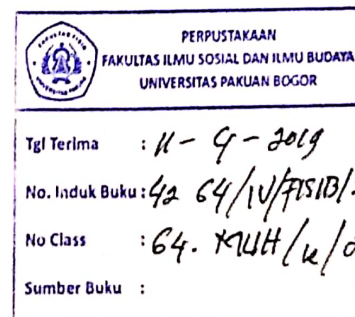 PERPUSTAKAAN
FAKULTAS ILMU SOSIAL DAN ILMU BUDAYA
UNIVERSITAS PAKUAN BOGOR
Tgl Terima : 11 - 4 - 2019
No. Induk Buku : 42 64/IV/FISIB/
No Class : 64. MUH/k/
Sumber Buku :